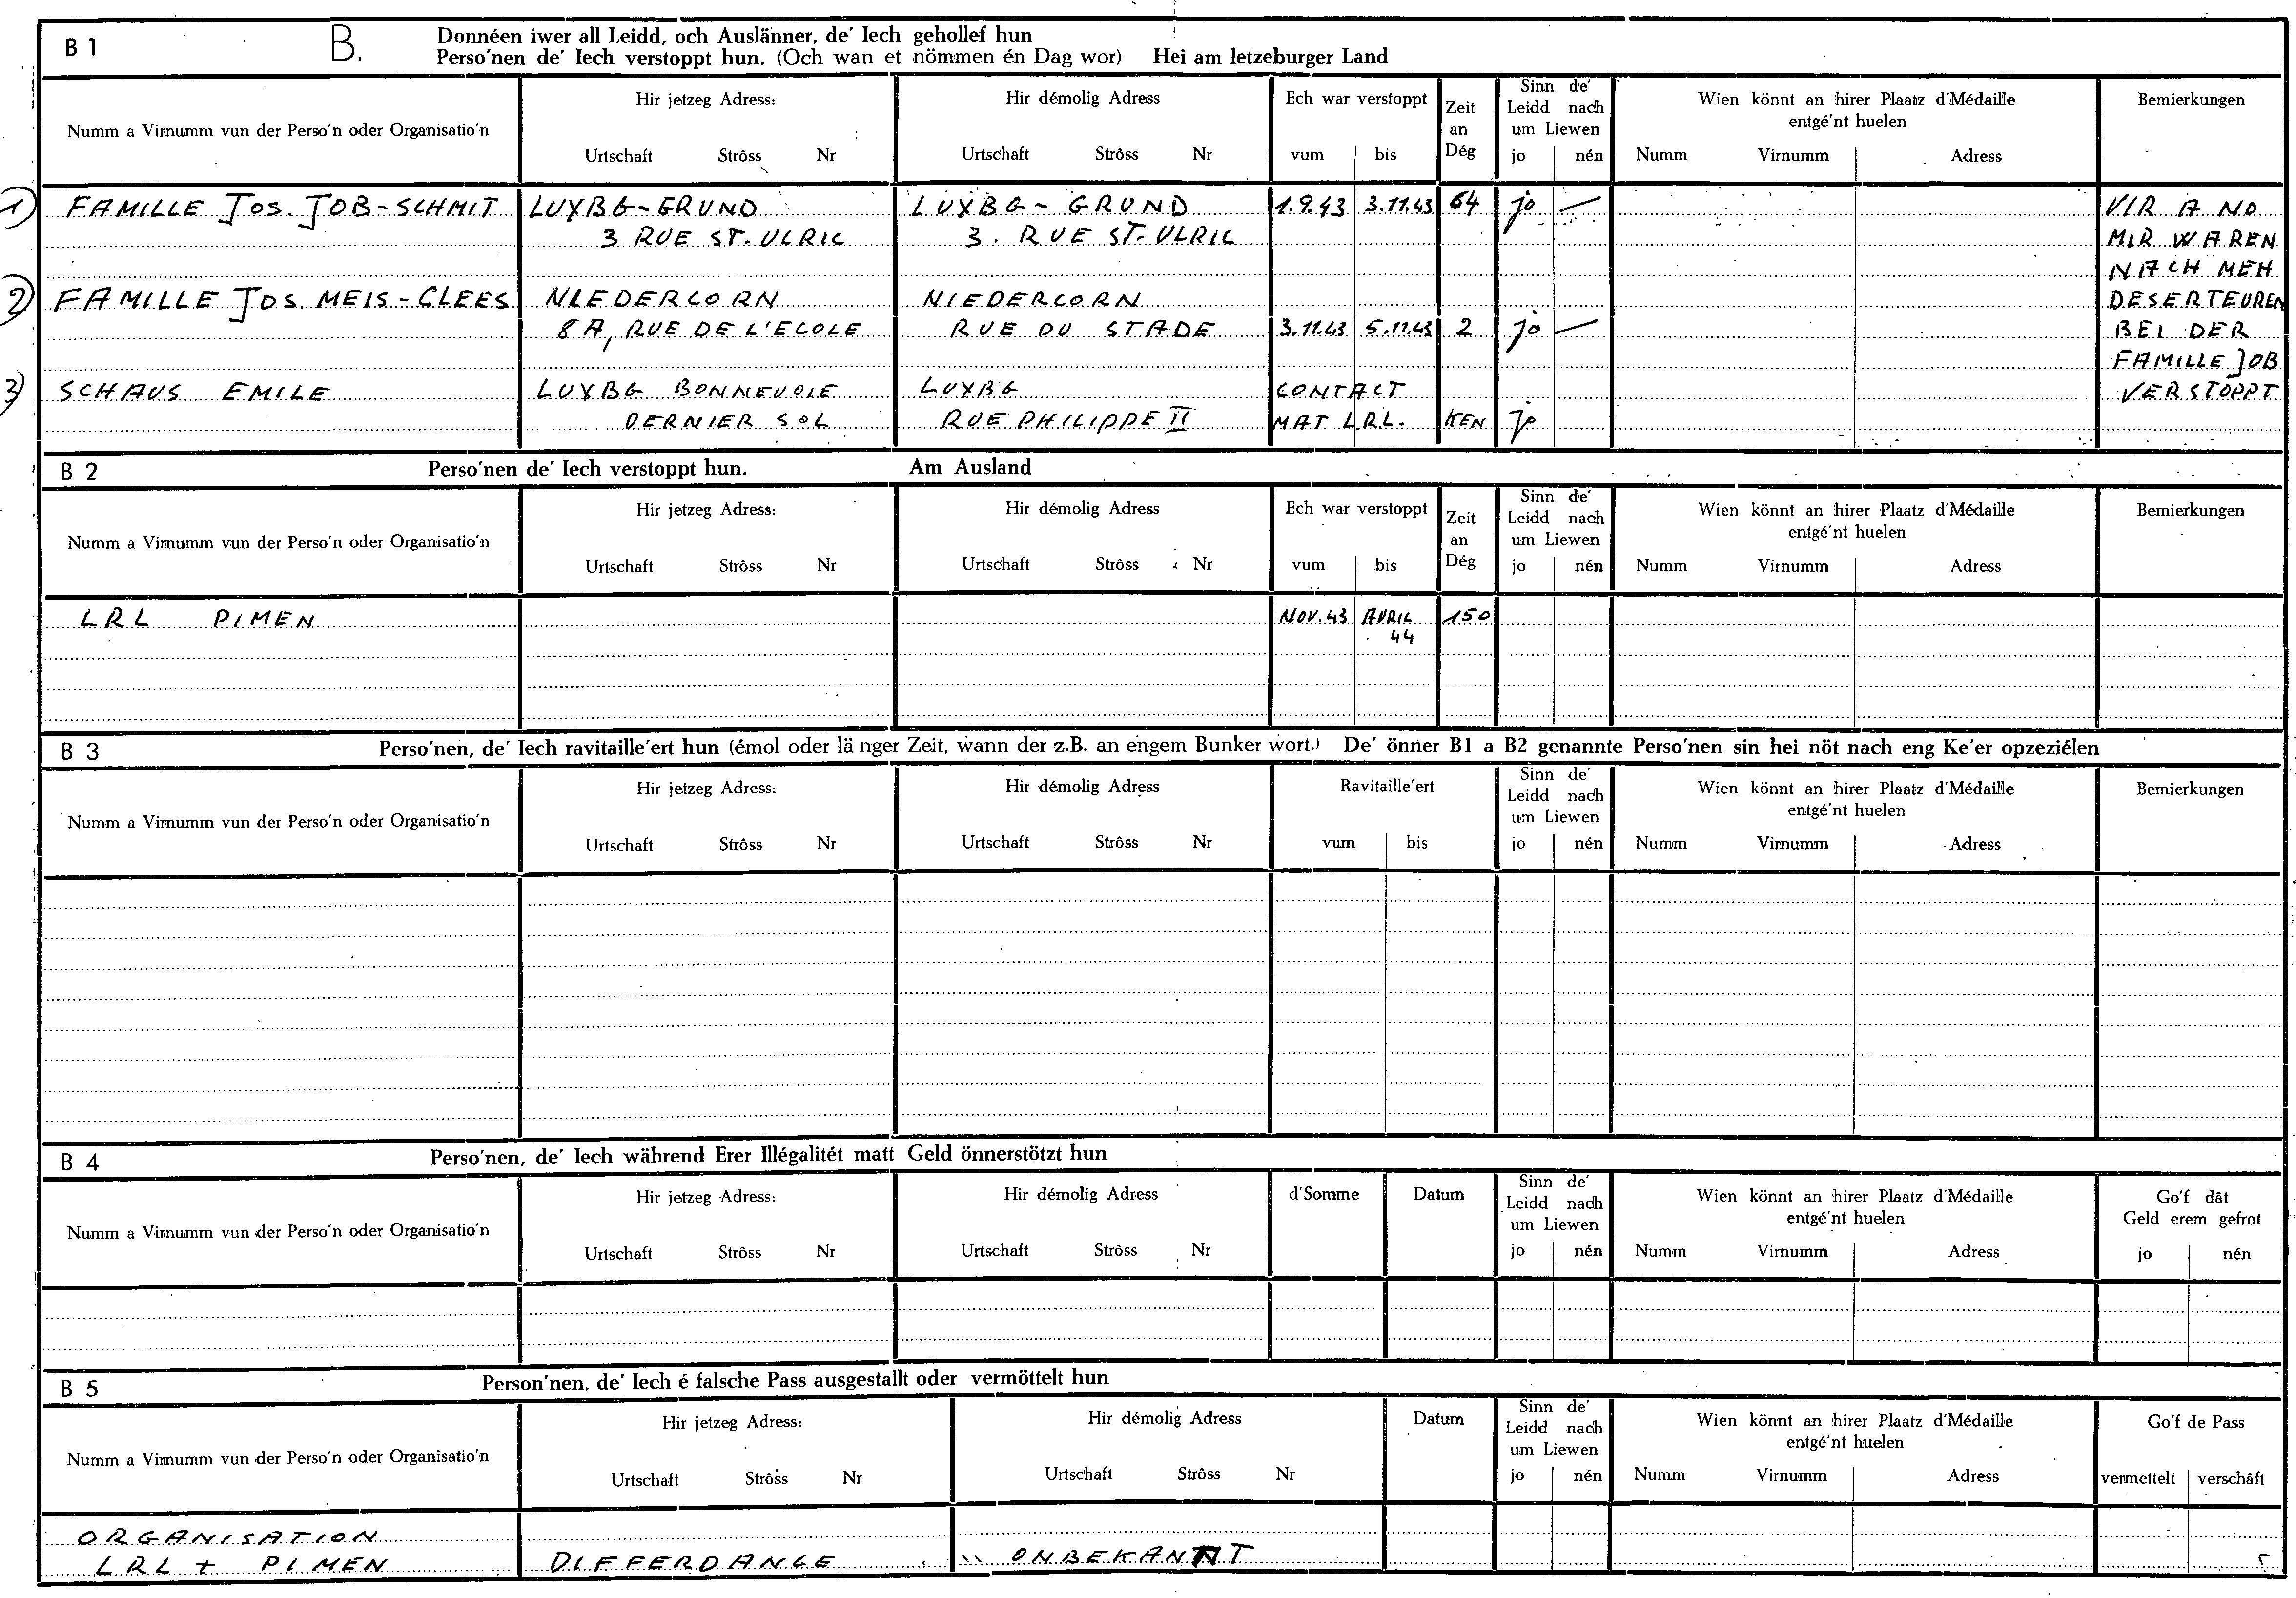 B 1 B. Donnéen iwer all Leidd, och Auslänner, de' Iech gehollef hun
Perso'nen de' Iech verstoppt hun. (Och wan et nömmen én Dag wor) Hei am letzeburger Land
Numm a Virnumm vun der Perso'n oder Organisatio'n
Hir jetzeg Adress:
Urtschaft Strôss Nr
Hir démolig Adress
Urtschaft Strôss Nr
Ech war verstoppt
vum bis
Zeit
an
Dég
Sinn de'
Leidd nach
um Liewen
jo nén
Wien könnt an hirer Plaatz d'Médaille
entgé'nt huelen
Numm Virnumm Adress
Bemierkungen
1) FAMILLE JOS. JOB-SCHMIT LUXBG-GRUND LUXBG - GRUND 1.9.43 3.11.43 64 jo — VIR A NO
3 RUE ST. ULRIC 3. RUE ST. ULRIC MIR WAREN
NACH MEH
2) FAMILLE JOS. MEIS-CLEES NIEDERCORN NIEDERCORN DESERTEUREN
8A, RUE DE L'ECOLE RUE DU STADE 3.11.43 5.11.43 2 jo — BEI DER
FAMILLE JOB
3) SCHAUS EMILE LUXBG BONNEVOIE LUXBG CONTACT VERSTOPPT
DERNIER SOL RUE PHILIPPE II MAT L.R.L. KEN jo
B 2 Perso'nen de' Iech verstoppt hun. Am Ausland
Numm a Virnumm vun der Perso'n oder Organisatio'n
Hir jetzeg Adress:
Urtschaft Strôss Nr
Hir démolig Adress
Urtschaft Strôss Nr
Ech war verstoppt
vum bis
Zeit
an
Dég
Sinn de'
Leidd nach
um Liewen
jo nén
Wien könnt an hirer Plaatz d'Médaille
entgé'nt huelen
Numm Virnumm Adress
Bemierkungen
LRL PIMEN NOV. 43 AVRIL 150
44
B 3 Perso'nen, de' Iech ravitaille'ert hun (émol oder länger Zeit, wann der z.B. an engem Bunker wort.) De' önner B1 a B2 genannte Perso'nen sin hei nöt nach eng Ke'er opzeziélen
Numm a Virnumm vun der Perso'n oder Organisatio'n
Hir jetzeg Adress:
Urtschaft Strôss Nr
Hir démolig Adress
Urtschaft Strôss Nr
Ravitaille'ert
vum bis
Sinn de'
Leidd nach
um Liewen
jo nén
Wien könnt an hirer Plaatz d'Médaille
entgé'nt huelen
Numm Virnumm Adress
Bemierkungen
B 4 Perso'nen, de' Iech während Erer Illégalitét matt Geld önnerstötzt hun
Numm a Virnumm vun der Perso'n oder Organisatio'n
Hir jetzeg Adress:
Urtschaft Strôss Nr
Hir démolig Adress
Urtschaft Strôss Nr
d'Somme
Datum
Sinn de'
Leidd nach
um Liewen
jo nén
Wien könnt an hirer Plaatz d'Médaille
entgé'nt huelen
Numm Virnumm Adress
Go'f dât
Geld erem gefrot
jo nén
B 5 Person'nen, de' Iech é falsche Pass ausgestallt oder vermöttelt hun
Numm a Virnumm vun der Perso'n oder Organisatio'n
Hir jetzeg Adress:
Urtschaft Strôss Nr
Hir démolig Adress
Urtschaft Strôss Nr
Datum
Sinn de'
Leidd nach
um Liewen
jo nén
Wien könnt an hirer Plaatz d'Médaille
entgé'nt huelen
Numm Virnumm Adress
Go'f de Pass
vermettelt verschâft
ORGANISATION
LRL + PIMEN DIFFERDANGE ONBEKANNT